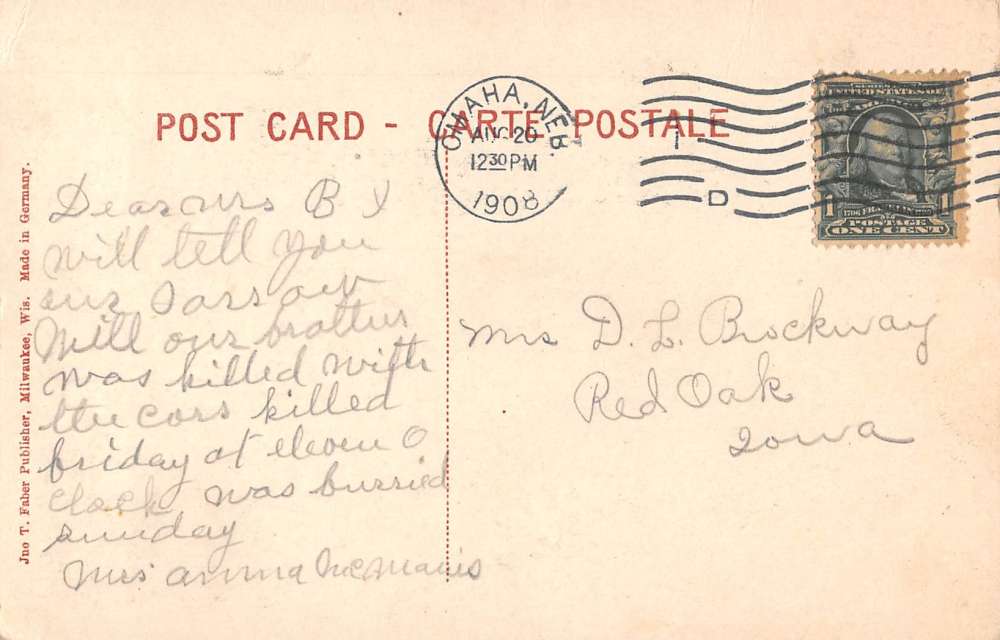 POST CARD - CARTE POSTALE
OMAHA, NEB.
AUG 20
12 30 PM
1908
D
UNITED STATES OF
1706 FRANKLIN 1790
POSTAGE
1 ONE CENT 1
Jno T. Faber Publisher, Milwaukee, Wis. Made in Germany.
Dear mrs B I
will tell you
our Sarsow
Will our brother
was killed with
the cars killed
friday at eleven O
clock was burried
sunday
Mrs anna McManis
Mrs D. L. Brockway
Red Oak
Iowa